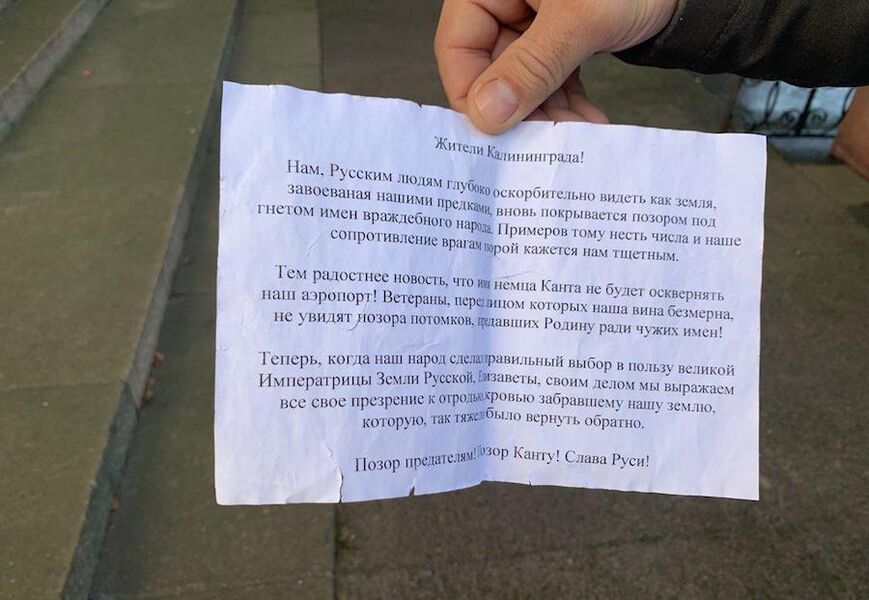 Жители Калининграда!
Нам, Русским людям глубоко оскорбительно видеть как земля,
завоеваная нашими предками, вновь покрывается позором под
гнетом имен враждебного народа. Примеров тому несть числа и наше
сопротивление врагам порой кажется нам тщетным.
Тем радостнее новость, что имя немца Канта не будет осквернять
наш аэропорт! Ветераны, перед лицом которых наша вина безмерна,
не увидят позора потомков, предавших Родину ради чужих имен!
Теперь, когда наш народ сделал правильный выбор в пользу великой
Императрицы Земли Русской, Елизаветы, своим делом мы выражаем
все свое презрение к отродью, кровью забравшему нашу землю,
которую, так тяжело было вернуть обратно.
Позор предателям! Позор Канту! Слава Руси!